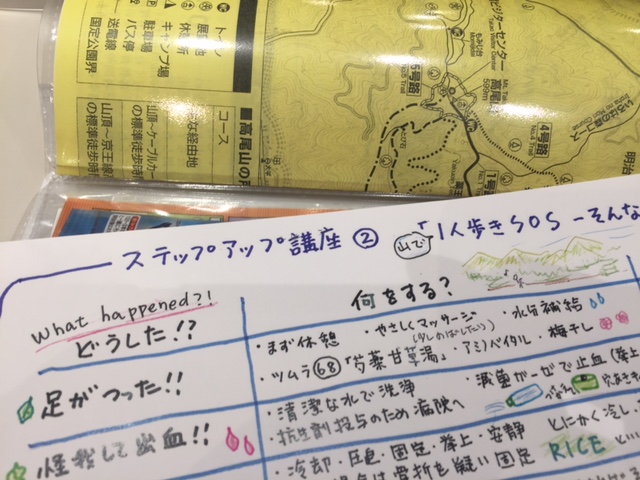 トイレ
休憩所
キャンプ場
駐車場
バス停
送電線
国定公園界
ビジターセンター
もみじ台
Momijidai
高尾山
599m
5号路
4号路
No.4 Trail
1号路
いろはの森コース
明治
■高尾山の
コース
主な経由地
山頂〜ケーブルカー
の標準徒歩時
山頂〜京王線
の標準徒歩時
ステップアップ講座 ② 山で「1人歩きSOS −そんな
What happened?!
どうした!?
何をする?
足がつった!!
・まず休憩 ・やさしくマッサージ ・水分補給
(少しのばしたり)
・ツムラ 68 「芍薬甘草湯」・アミノバイタル・梅干し
怪我して出血!!
・清潔な水で洗浄 ・滅菌ガーゼで止血(挙上
・抗生剤投与のため病院へ
・冷却・圧迫・固定・挙上・安静 とにかく冷し
合は骨折を疑い固定 RICE